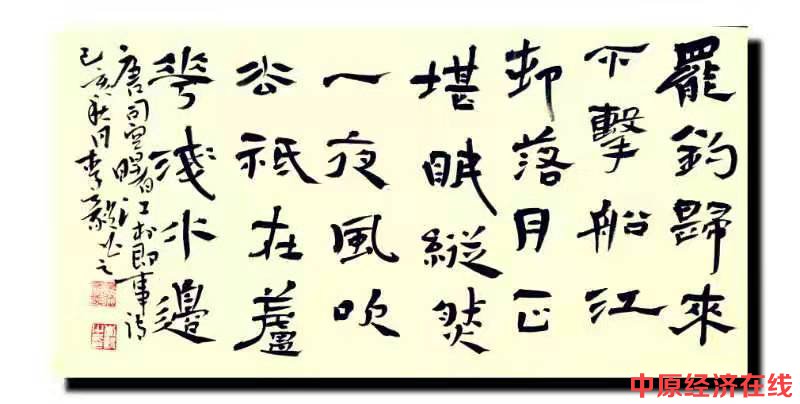 罷釣歸來
不擊船江
邨落月正
堪眠縱然
一夜風吹
厺祇在蘆
華淺水邊
唐司空曙江村即事诗
己亥秋月李
中原经济在线